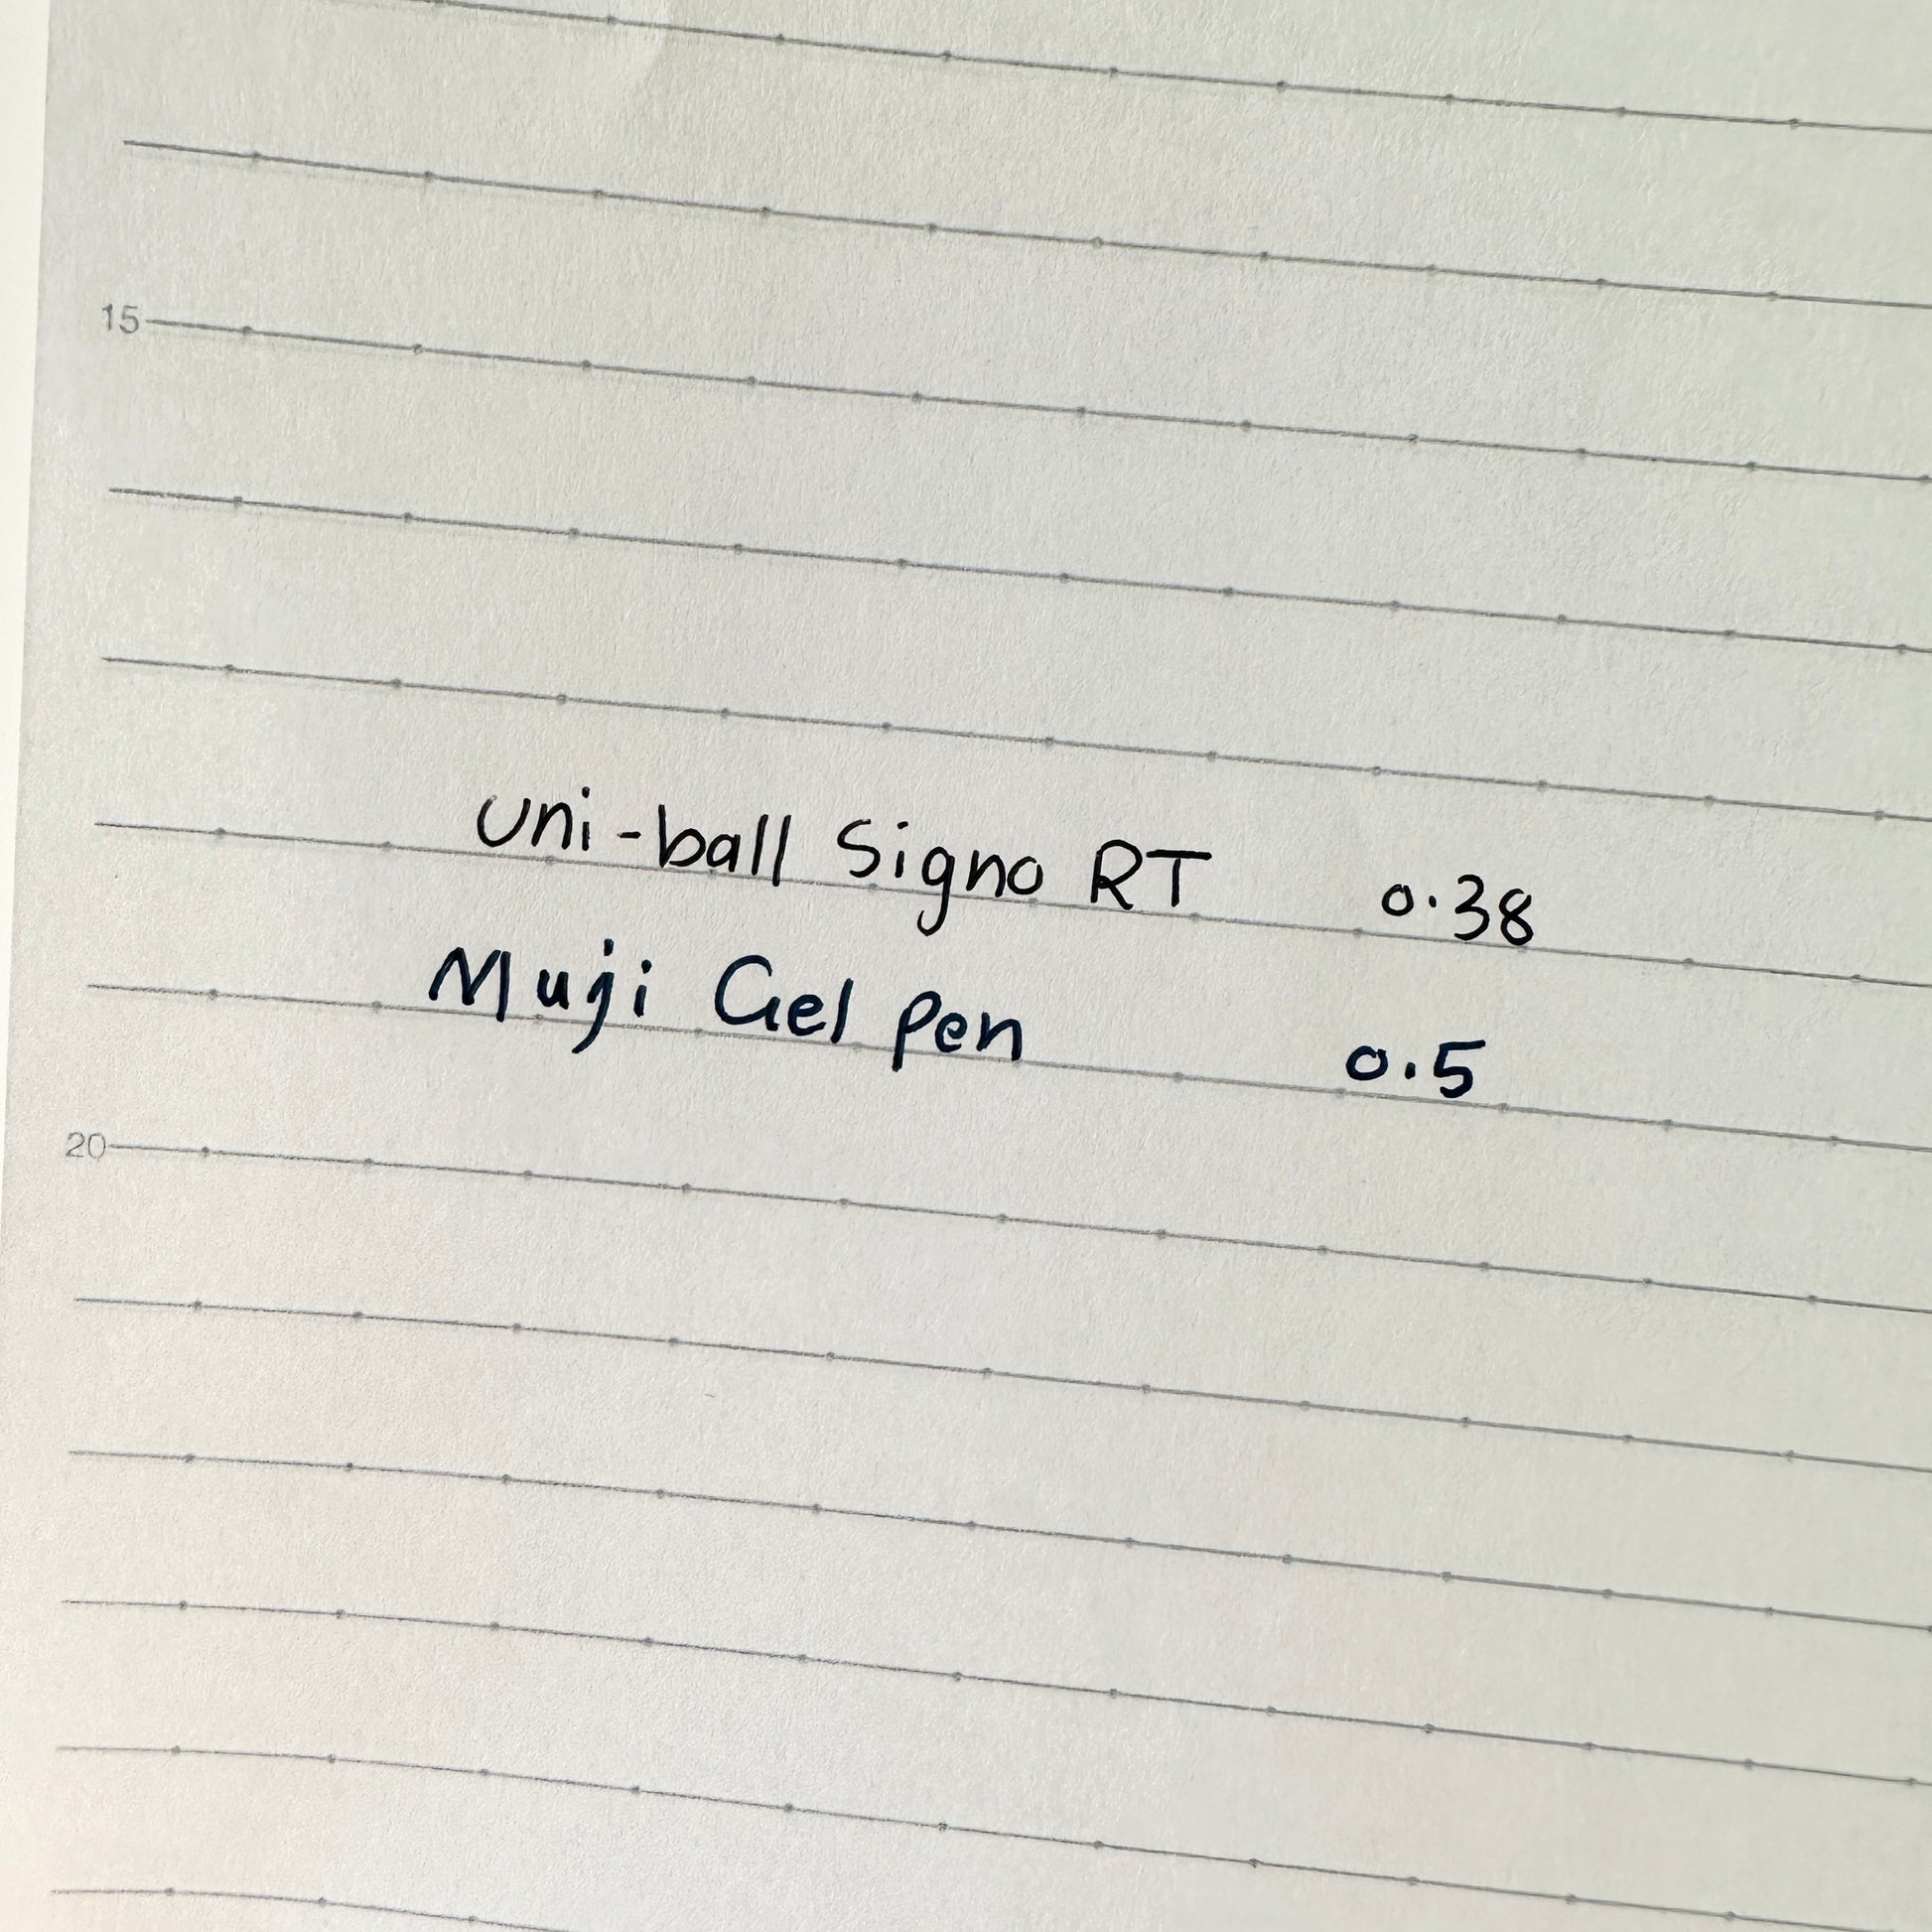 15
Uni-ball Signo RT 0.38
Muji Gel Pen 0.5
20